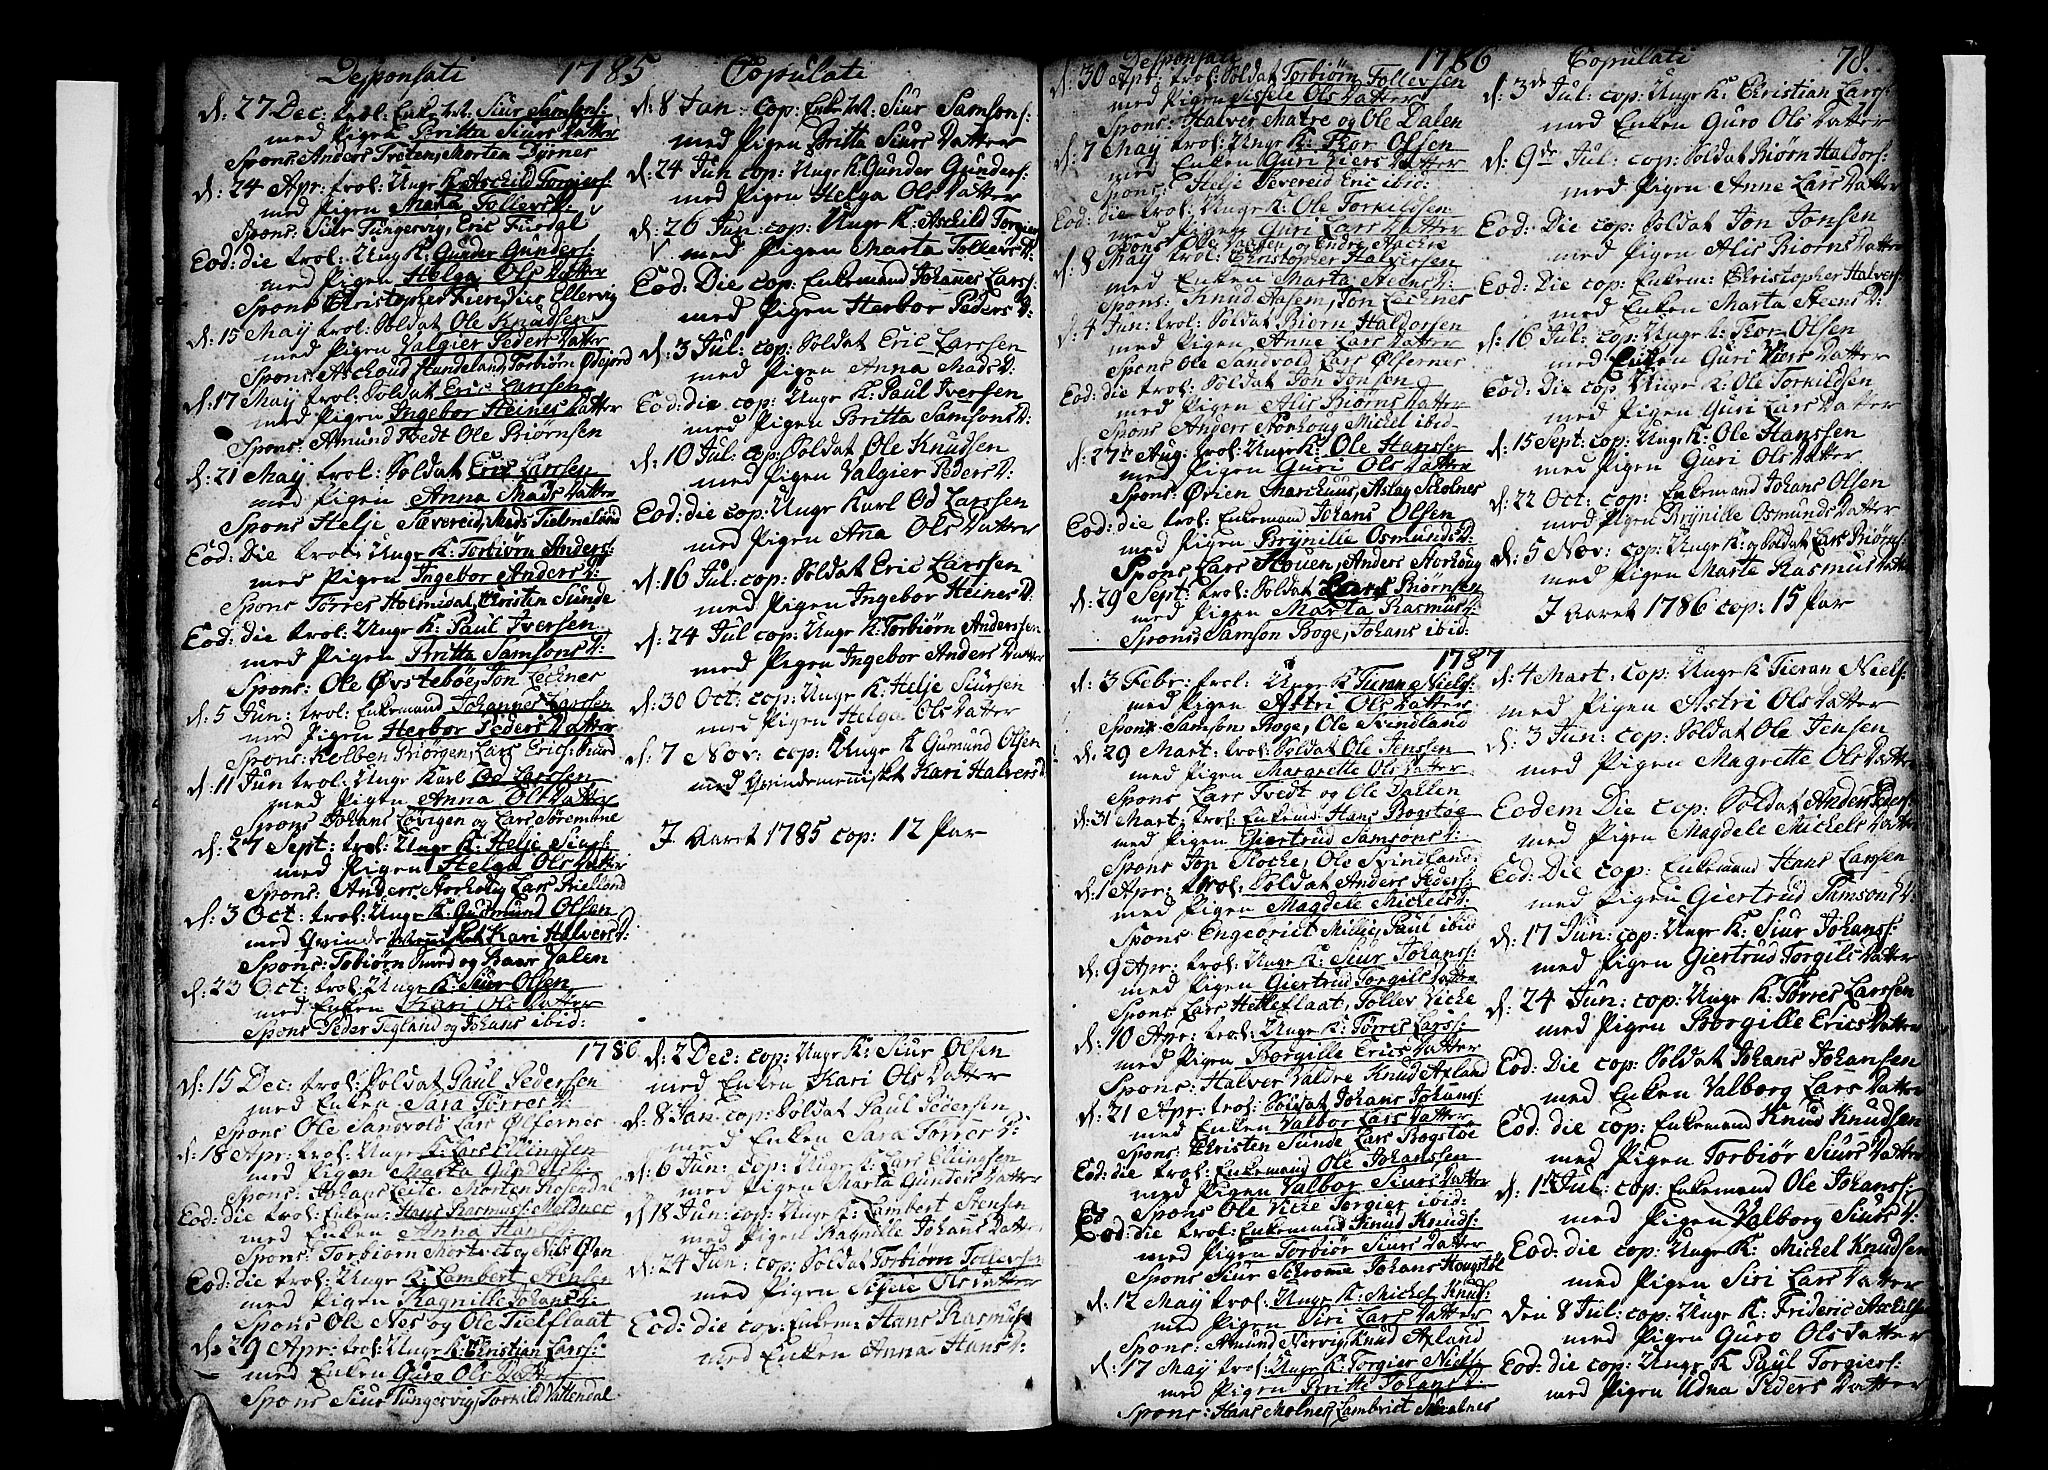 Desponsati 1785 Copulati
d: 27 Dec: trol: Enke M: Siur Samsons:
med Pigen Britta Siurs Datter
Spons: Anders Tveten, Morten Dyrnes
d: 24 Apr: trol: Unge K: Aschild Torgiers:
med Pigen Marta Tollevs D:
Spons: Siur Tungesvig, Eric Furdal
Eod: die trol: Ung K: Gunder Gunders:
med Pigen Helga Ols Datter
Spons Christopher Ellervig
d: 15 May trol: Soldat Ole Knudsen
med Pigen Valgier Peders Datter
Spons: Hundeland, Torbiørn Ødejord
d: 17 May trol: Soldat Eric Larssen
med Pigen Ingebor Heines Datter
Spons: Amund Tvedt Ole Biørnsen
d: 21 May trol: Soldat Eric Larssen
med Pigen Anna Mads Datter
Spons Helje Sævereid, Mads Tielmeland
Eod: Die trol: Unge K: Torbiørn Anders:
med Pigen Ingebor Anders D:
Spons Tørres Holmedal, Christen Sunde
Eod: die trol: Unge K: Paul Iversen
med Pigen Britta Samsons D:
Spons: Ole Øvstebøe, Jon Lechnes
d: 5 Jun: trol: Enkemand Johannes Larssen
med Pigen Herbor Peders Datter
Spons: Kolben Biørgen, Lars Erics:
d: 11 Jun trol: Unge Karl Od Larssen
med Pigen Anna Ols Datter
Spons Johans Løvigen og Lars
d: 27 Sept: trol: Unge K: Helje Siurs:
med Pigen Helga Ols Datter
Spons: Anders Storhoug Lars Bielland
d: 3 Oct: trol: Unge K: Gudmund Olsen
med Qvinde Kari Halvers D:
Spons: Tobiørn og Dalen
d: 23 Oct: trol: Unge K: Siur Olsen
med Enken Kari Ols Datter
Spons Peder Tigland og Johans ibid:
1786
d: 15 Dec: trol: Soldat Paul Pedersen
med Enken Sara Tørres D:
Spons Ole Sandvold Lars Ølfernes
d: 18 Apr: trol: Unge K: Lars Ellingsen
med Pigen Marta Gunders D:
Spons: Johans Leite Morten Rosendal
Eod: die trol: Enkem: Hans Rasmus:
med Enken Anna Hans D:
Spons: Torbiørn og Nils
Eod: die trol: Unge K: Lambert Stensen
med Pigen Ragnille Johans D:
Spons Ole Nes og Ole Tielflaat
d: 29 Apr: trol: Unge K: Christian Larss:
med Enken Guro Ols Datter
Spons Siur Tungesvig, Torkild Vattendal
d: 8 Jan: cop: Enke M: Siur Samsons:
med Pigen Britta Siurs Datter
d: 24 Jun cop: Unge K: Gunder Gunders:
med Pigen Helga Ols Datter
d: 26 Jun: cop: Unge K: Aschild Torgiers
med Pigen Marta Tollevs D:
Eod: Die cop: Enkemand Johannes Larss:
med Pigen Herbor Peders D:
d: 3 Jul: cop: Soldat Eric Larssen
med Pigen Anna Mads D:
Eod: die cop: Unge K: Paul Iversen
med Pigen Britta Samsons D:
d: 10 Jul: cop: Soldat Ole Knudsen
med Pigen Valgier Peders D:
Eod: die cop: Unge Karl Od Larssen
med Pigen Ana Ols Datter
d: 16 Jul: cop: Soldat Eric Larssen
med Pigen Ingebor Heines D:
d: 24 Jul cop: Unge K: Torbiørn Anderssen
med Pigen Ingebor Anders Datter
d: 30 Oct: cop: Unge K: Helje Siursen
med Pigen Helga Ols Datter
d: 7 Nov: cop: Unge K Gumund Olsen
med Qvindemennisket Kari Halvers D
I Aaret 1785 cop: 12 Par
d: 2 Dec: cop: Unge K: Siur Olsen
med Enken Kari Ols Datter
d: 8 Jan: cop: Soldat Paul Pedersen
med Enken Sara Tørres D:
d: 6 Jun: cop: Unge K: Lars Ellingsen
med Pigen Marta Gunders Datter
d: 18 Jun: cop: Unge K: Lambert Stensen
med Pigen Ragnille Johans Datter
d: 24 Jun: cop: Soldat Torbiørn Tollevsen
med Pigen Sissele Ols Datter
Eod: die cop: Enkem: Hans Rasmus
med Enken Anna Hans D:
Desponsati 1786 Copulati 78.
d: 30 Apr: trol: Soldat Torbiørn Tollevsen
med Pigen Sissele Ols Datter
Spons: Halver Matre og Ole Dalen
d: 7 May trol: Unge K: Thor Olsen
med Enken Guri Datter
Spons: Helje Severeid Eric ibid:
Eod: die trol: Unge K: Ole Torkildsen
med Pigen Guri Lars Datter
Spons Ole og Endre
d: 8 May trol: Christopher Halversen
med Enken Marta Steens D:
Spons: Knud Aasem, Jon Lechnes
d: 4 Jun: trol: Soldat Biørn Haldorsen
med Pigen Anne Lars Datter
Spons Ole Sandvold Lars Ølfernes
Eod: die trol: Soldat Jon Jonsen
med Pigen Alis Biørns Datter
Spons Anders Storhoug Michel ibid
d: 27 Aug: trol: Unge K: Ole Hanssen
med Pigen Guri Ols Datter
Spons: Ørien Marchuus, Aslag Scholnes
Eod: die trol: Enkemand Johans Olsen
med Pigen Brynille Osmunds D:
Spons Lars Houen, Anders Storhoug
d: 29 Sept: trol: Soldat Lars Biørnsen
med Pigen Marta Rasmus D:
Spons: Samson Boge, Johans ibid:
1787
d: 3 Febr: trol: Unge K Nielss:
med Pigen Astri Ols Datter
Spons: Samsons Boge, Ole Svindland
d: 29 Mart: trol: Soldat Ole Jenssen
med Pigen Margrette Ols Datter
Spons Lars Tvedt og Ole Dallen
d: 31 Mart: trol: Enkemd: Hans Bogstøe
med Pigen Giertrud Samsons D:
Spons Jon Floche, Ole Svindland:
d: 1 Apr: trol: Soldat Anders Peders:
med Pigen Magdele Michels D:
Spons Engebrict Millie, Paul ibid
d: 9 Apr: trol: Unge K: Siur Johanss:
med Pigen Giertrud Torgils Datter
Spons Lars Hetleflaat, Tollev Vicke
d: 10 Apr: trol: Unge K: Tørres Larss:
med Pigen Borgille Erics Datter
Spons: Halver Valdre Knud Axland
d: 21 Apr: trol: Soldat Johans Johanss:
med Enken Valbor Lars Datter
Spons: Christen Sunde Lars Bogstøe
Eod: die trol: Enkemand Ole Johanssen
med Pigen Valbor Siurs Datter
Spons Ole Vicke Torgier ibid:
Eod: die trol: Enkemand Knud Knuds:
med Pigen Torbiør Siurs Datter
Spons Siur Johans Hougstøe
d: 12 May trol: Unge K: Michel Knud:
med Pigen Siri Lars Datter
Spons: Amund Nervig, Knud Axland
d: 17 May trol: Unge K: Torgier Niels:
med Pigen Britte Johans D:
Spons: Hans Molnes, Lambrict Scholnes
d: 3de Jul: cop: Unge K: Christian Larss:
med Enken Guro Ols Datter
d: 9de Jul: cop: Soldat Biørn Haldors:
med Pigen Anne Lars Datter
Eod: Die cop: Soldat Jon Jonsen
med Pigen Alis Biorns Datter
Eod: Die cop: Enkem: Christopher Halvers:
med Enken Marta Steens D:
d: 16 Jul: cop: Unge K: Thor Olsen
med Enken Guri Datter
Eod: Die cop: Unge K: Ole Torkildsen
med Pigen Guri Lars Datter
d: 15 Sept: cop: Unge K: Ole Hanssen
med Pigen Guri Ols Datter
d: 22 Oct: cop: Enkemand Johans Olsen
med Pigen Brynille Osmunds Datter
d: 5 Nov: cop: Unge K: og Soldat Lars Biørns:
med Pigen Marte Rasmus Datter
I Aaret 1786 cop: 15 Par
d: 4 Mart: cop: Unge K Niels:
med Pigen Astri Ols Datter
d: 3 Jun: cop: Soldat Ole Jensen
med Pigen Magrette Ols Datter
Eodem Die cop: Soldat Anders Peders:
med Pigen Magdele Michels Datter
Eod: Die cop: Enkemand Hans Larssen
med Pigen Giertrud Samsons D:
d: 17 Jun: cop: Unge K: Siur Johanss:
med Pigen Giertrud Torgils Datter
d: 24 Jun: cop: Unge K: Tørres Larssen
med Pigen Borgille Erics Datter
Eod: Die cop: Soldat Johans Johansen
med Enken Valborg Lars Datter
Eod: die cop: Enkemand Knud Knudsen
med Pigen Torbiør Siurs Datter
d: 1ste Jul: cop: Enkemand Ole Johanss:
med Pigen Valborg Siurs D:
Eod: die cop: Unge K: Michel Knudsen
med Pigen Siri Lars Datter
Den 8 Jul: cop: Unge K: Frideric Aschilsen
med Pigen Guro Ols Datter
Eod: die cop: Unge K Paul Torgiers:
med Pigen Udna Peders Datter